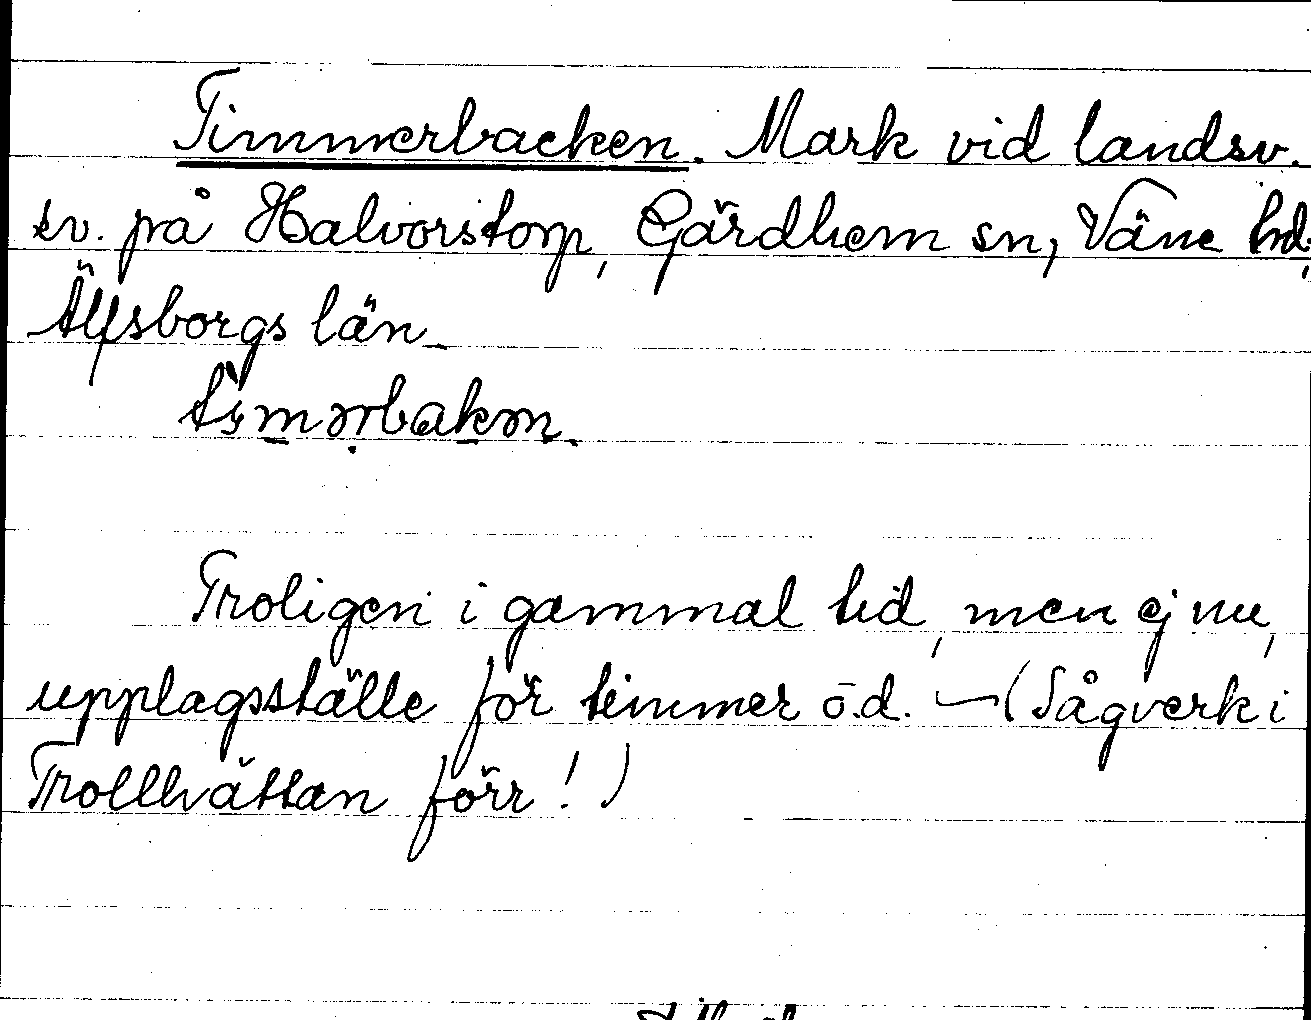 Timmerbacken. Mark vid landsv.
sv. på Halvorstorp, Gärdhem sn, Väne hd,
Älfsborgs län.
Troligen i gammal tid, men ej nu,
upplagsställe för timmer o.d. – (Sågverk i
Trollhättan förr!)